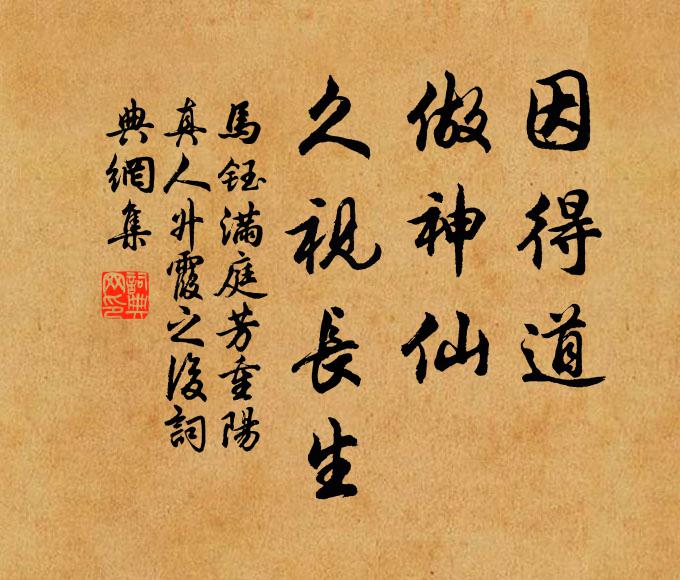 因得道
做神仙
久視長生
馬鈺滿庭芳重陽
真人升霞之後詞
典網集
詞典網印